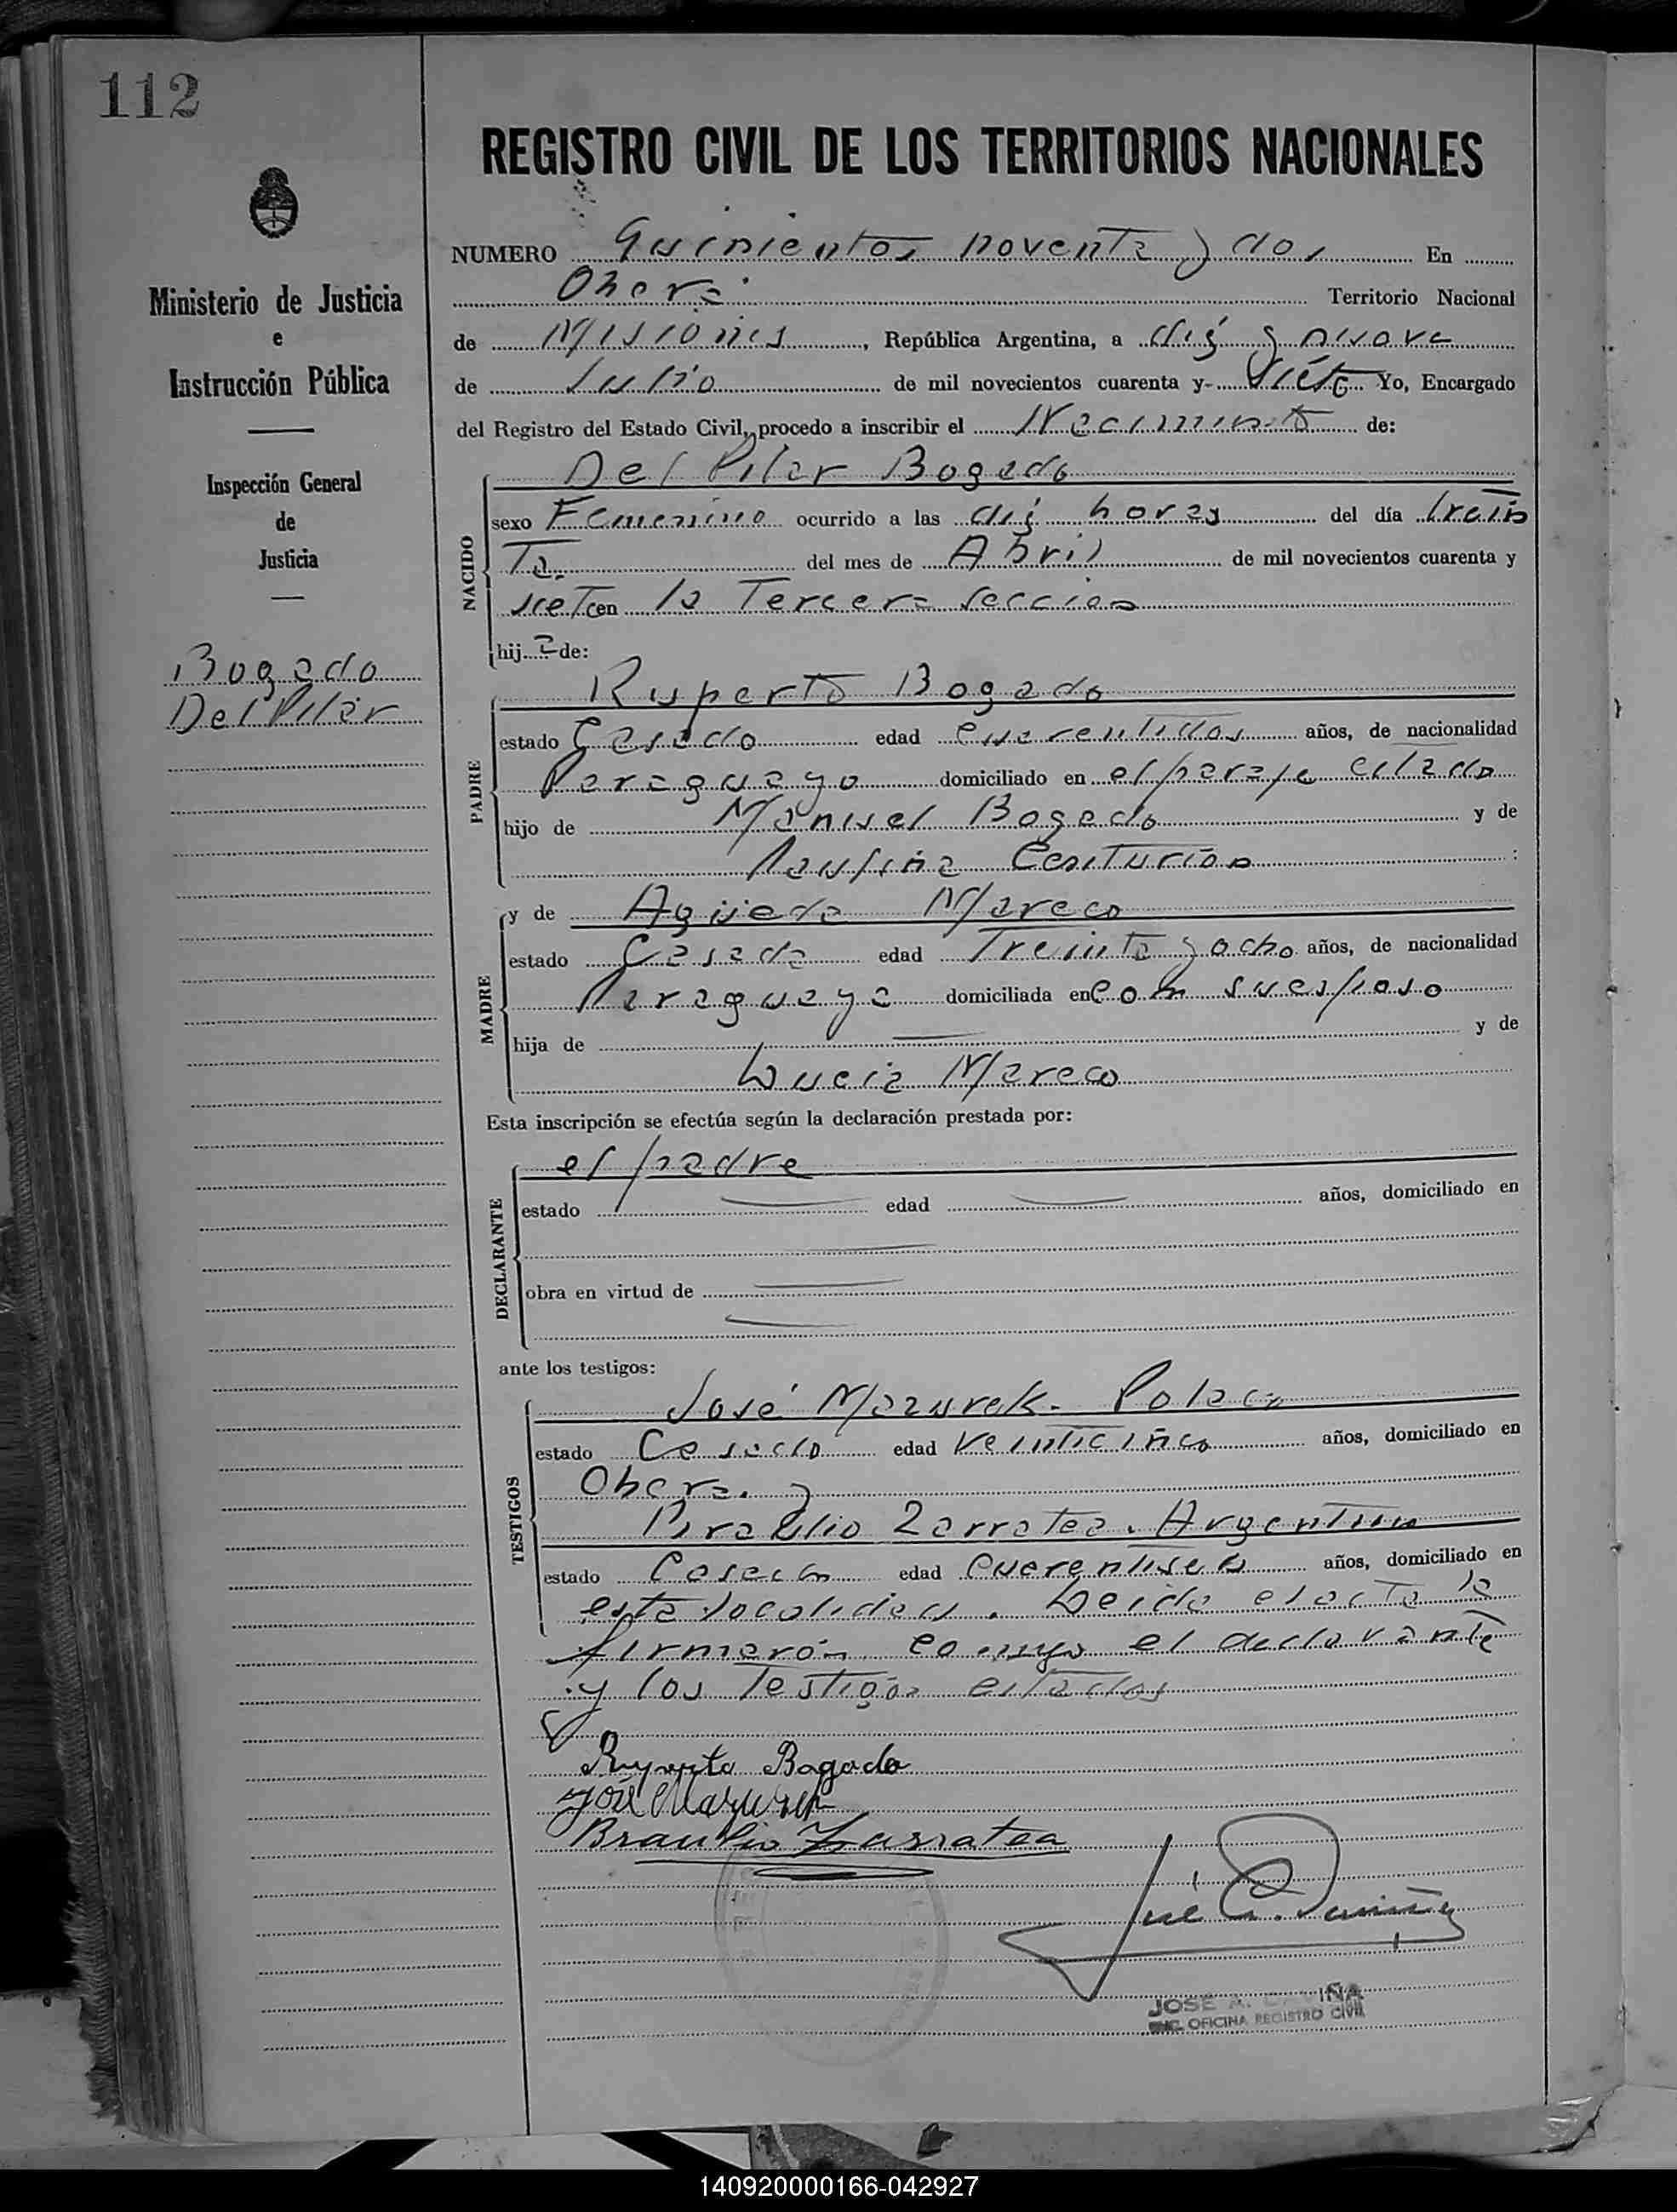 112
REGISTRO CIVIL DE LOS TERRITORIOS NACIONALES
Ministerio de Justicia
e
Instrucción Pública
Inspección General
de
Justicia
Bogado
Del Pilar
NUMERO Quinientos noventa y dos En
Oberá Territorio Nacional
de Misiones, República Argentina, a diez y nueve
de Julio de mil novecientos cuarenta y- siete Yo, Encargado
del Registro del Estado Civil, procedo a inscribir el Nacimiento de:
NACIDO
Del Pilar Bogado
sexo Femenino ocurrido a las diez horas del día trein
ta del mes de Abril de mil novecientos cuarenta y
siete en la Tercera Seccion
hija de:
PADRE
Ruperto Bogado
estado Casado edad cuarentidos años, de nacionalidad
Paraguayo domiciliado en el paraje citado
hijo de Manuel Bogado y de
Paulina Centurión
MADRE
y de Agüeda Mareco
estado Casada edad Treinta y ocho años, de nacionalidad
Paraguaya domiciliada en con su esposo
hija de — y de
Lucia Mareco
Esta inscripción se efectúa según la declaración prestada por:
DECLARANTE
el padre
estado — edad — años, domiciliado en
obra en virtud de
ante los testigos:
TESTIGOS
José Mazurek. Polaco
estado Casado edad Veinticinco años, domiciliado en
Oberá. y
Braulio Zarratea. Argentino
estado Casado edad cuarentiseis años, domiciliado en
esta localidad. Leida el acta la
firmarón conmigo el declarante
y los Testigos citados
Ruperto Bogado
José Mazurek
Braulio Zarratea
JOSE A. VIÑA
ENC. OFICINA REGISTRO CIVIL
140920000166-042927